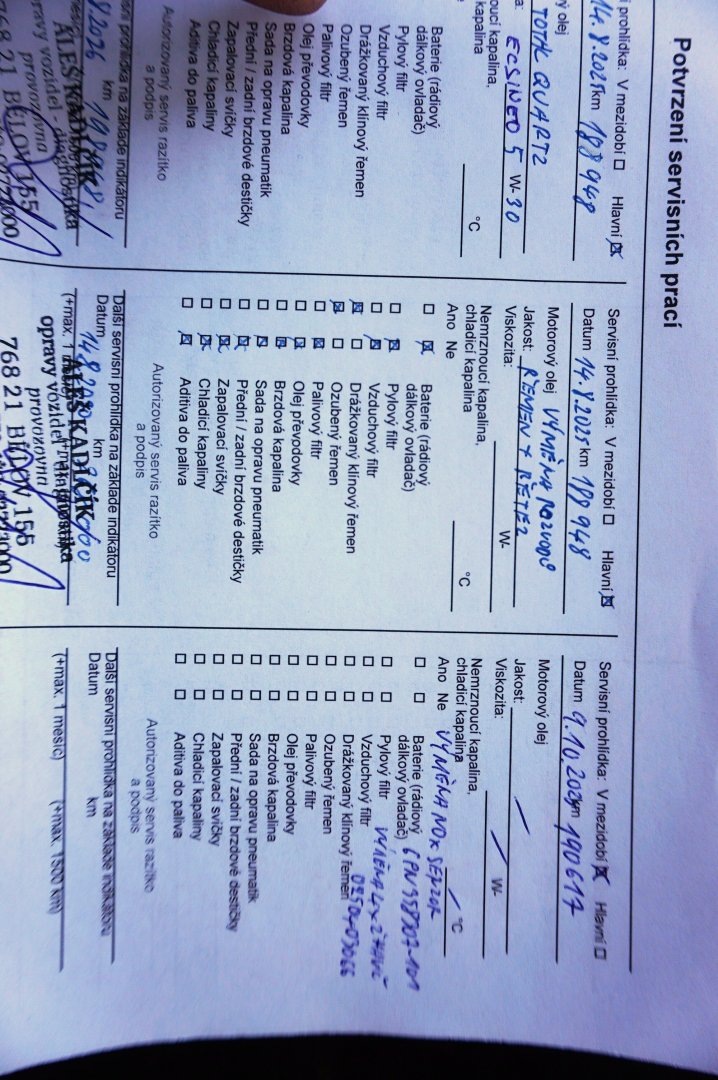 Potvrzení servisních prací
prohlídka: V mezidobí ☐ Hlavní ☒
14.8.2025 km 188 948
olej
TOTAL QUARTZ
ECS INEO 5 W-30
kapalina,
kapalina
°C
Baterie (rádiový
dálkový ovladač)
Pylový filtr
Vzduchový filtr
Drážkovaný klínový řemen
Ozubený řemen
Palivový filtr
Olej převodovky
Brzdová kapalina
Sada na opravu pneumatik
Přední / zadní brzdové destičky
Zapalovací svíčky
Chladicí kapaliny
Aditiva do paliva
Autorizovaný servis razítko
a podpis
prohlídka na základe indikátoru
8.2026 km
ALEŠ KADLČÍK
opravy vozidel - diagnostika
provozovna
768 21 BĚLOV 155
Servisní prohlídka: V mezidobí ☐ Hlavní ☒
Datum 14.8.2025 km 188 948
Motorový olej VÝMĚNA ROZVODŮ
Jakost: ŘEMEN + ŘETĚZ
Viskozita: W-
Nemrznoucí kapalina,
chladicí kapalina °C
Ano Ne
☐ ☒ Baterie (rádiový
dálkový ovladač)
☐ ☒ Pylový filtr
☐ ☒ Vzduchový filtr
☒ ☐ Drážkovaný klínový řemen
☒ ☐ Ozubený řemen
☐ ☒ Palivový filtr
☐ ☒ Olej převodovky
☐ ☒ Brzdová kapalina
☐ ☒ Sada na opravu pneumatik
☐ ☒ Přední / zadní brzdové destičky
☐ ☒ Zapalovací svíčky
☐ ☒ Chladicí kapaliny
☐ ☒ Aditiva do paliva
Autorizovaný servis razítko
a podpis
Další servisní prohlídka na základe indikátoru
Datum km
(+max. 1
ALEŠ KADLČÍK
opravy vozidel - diagnostika
provozovna
768 21 BĚLOV 155
Servisní prohlídka: V mezidobí ☒ Hlavní ☐
Datum 9.10.2025 km 190617
Motorový olej
Jakost:
Viskozita: W-
Nemrznoucí kapalina,
chladicí kapalina °C
Ano Ne VÝMĚNA NOX SENZOR
☐ ☐ Baterie (rádiový
dálkový ovladač)
☐ ☐ Pylový filtr VÝMĚNA 4x
☐ ☐ Vzduchový filtr
☐ ☐ Drážkovaný klínový řemen
☐ ☐ Ozubený řemen
☐ ☐ Palivový filtr
☐ ☐ Olej převodovky
☐ ☐ Brzdová kapalina
☐ ☐ Sada na opravu pneumatik
☐ ☐ Přední / zadní brzdové destičky
☐ ☐ Zapalovací svíčky
☐ ☐ Chladicí kapaliny
☐ ☐ Aditiva do paliva
Autorizovaný servis razítko
a podpis
Další servisní prohlídka na základe indikátoru
Datum km
(+max. 1 mesíc) (+max. 1500 km)